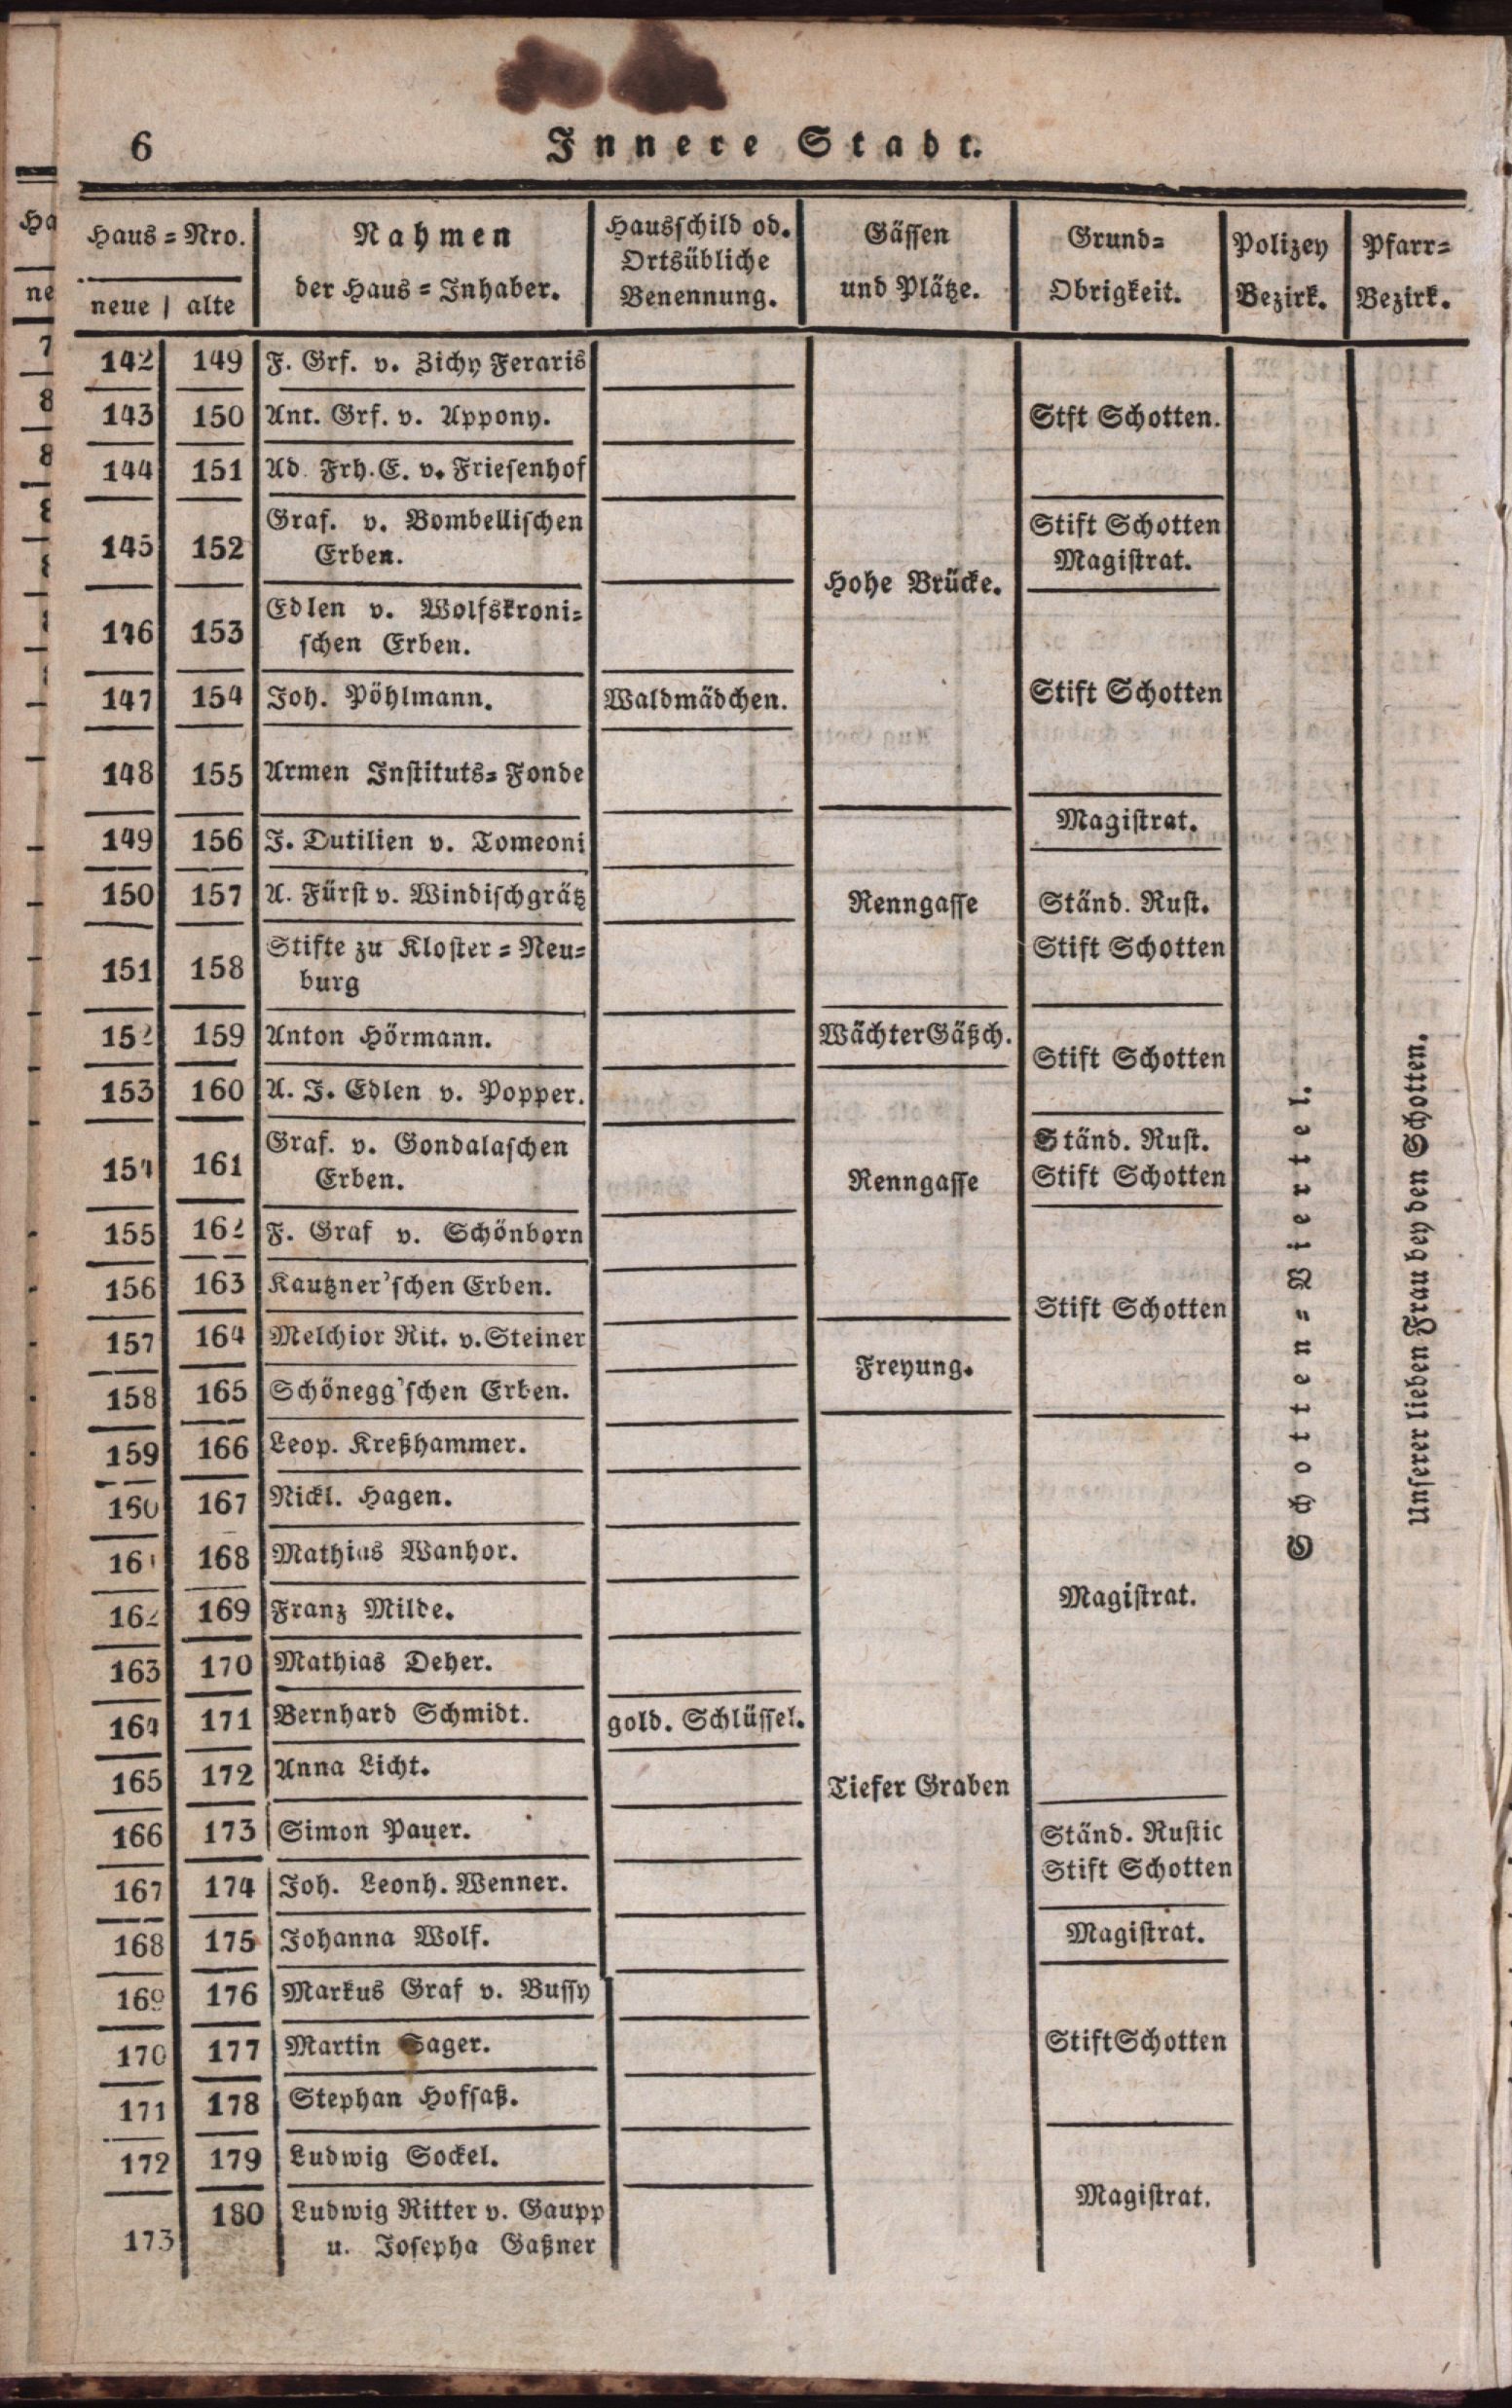 6
Innere Stadt.
Haus-Nro.
neue | alte
Nahmen
der Haus-Inhaber.
Hausschild od.
Ortsübliche
Benennung.
Gässen
und Plätze.
Grund-
Obrigkeit.
Polizey
Bezirk.
Pfarr-
Bezirk.
142 149 F. Grf. v. Zichy Feraris
143 150 Ant. Grf. v. Appony. Stft Schotten.
144 151 Ad. Frh. E. v. Friesenhof
145 152 Graf. v. Bombellischen Stift Schotten
Erben. Magistrat.
Hohe Brücke.
146 153 Edlen v. Wolfskroni-
schen Erben.
147 154 Joh. Pöhlmann. Waldmädchen. Stift Schotten
148 155 Armen Instituts-Fonde
149 156 J. Dutilien v. Tomeoni Magistrat.
150 157 A. Fürst v. Windischgrätz Renngasse Ständ. Rust.
151 158 Stifte zu Kloster-Neu- Stift Schotten
burg
152 159 Anton Hörmann. Wächter Gäßch. Stift Schotten
153 160 A. J. Edlen v. Popper.
154 161 Graf. v. Gondalaschen Ständ. Rust.
Erben. Renngasse Stift Schotten
155 162 F. Graf v. Schönborn
156 163 Kautzner'schen Erben. Stift Schotten
157 164 Melchior Rit. v. Steiner Freyung.
158 165 Schönegg'schen Erben.
159 166 Leop. Kreßhammer.
160 167 Nickl. Hagen.
161 168 Mathias Wanhor.
162 169 Franz Milde. Magistrat.
163 170 Mathias Deher.
164 171 Bernhard Schmidt. gold. Schlüssel.
165 172 Anna Licht. Tiefer Graben
166 173 Simon Pauer. Ständ. Rustic
167 174 Joh. Leonh. Wenner. Stift Schotten
168 175 Johanna Wolf. Magistrat.
169 176 Markus Graf v. Bussy
170 177 Martin Sager. Stift Schotten
171 178 Stephan Hofsaß.
172 179 Ludwig Sockel.
173 180 Ludwig Ritter v. Gaupp Magistrat.
u. Josepha Gaßner
Schotten-Viertel.
Unserer lieben Frau bey den Schotten.